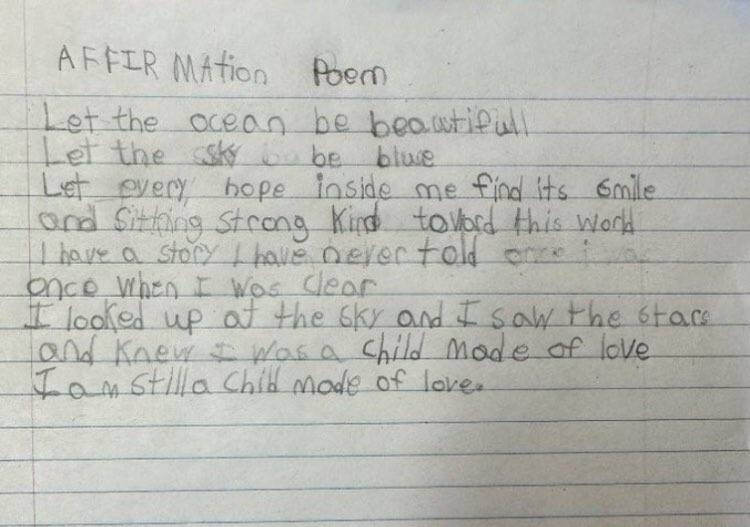 AFFIRMAtion Poem
Let the ocean be beautifull
Let the sky be blue
Let every hope inside me find its smile
and Sitting strong Kind toward this world
I have a story I have never told
once when I was clear
I looked up at the sky and I saw the stars
and knew I was a child made of love
I am still a child made of love.